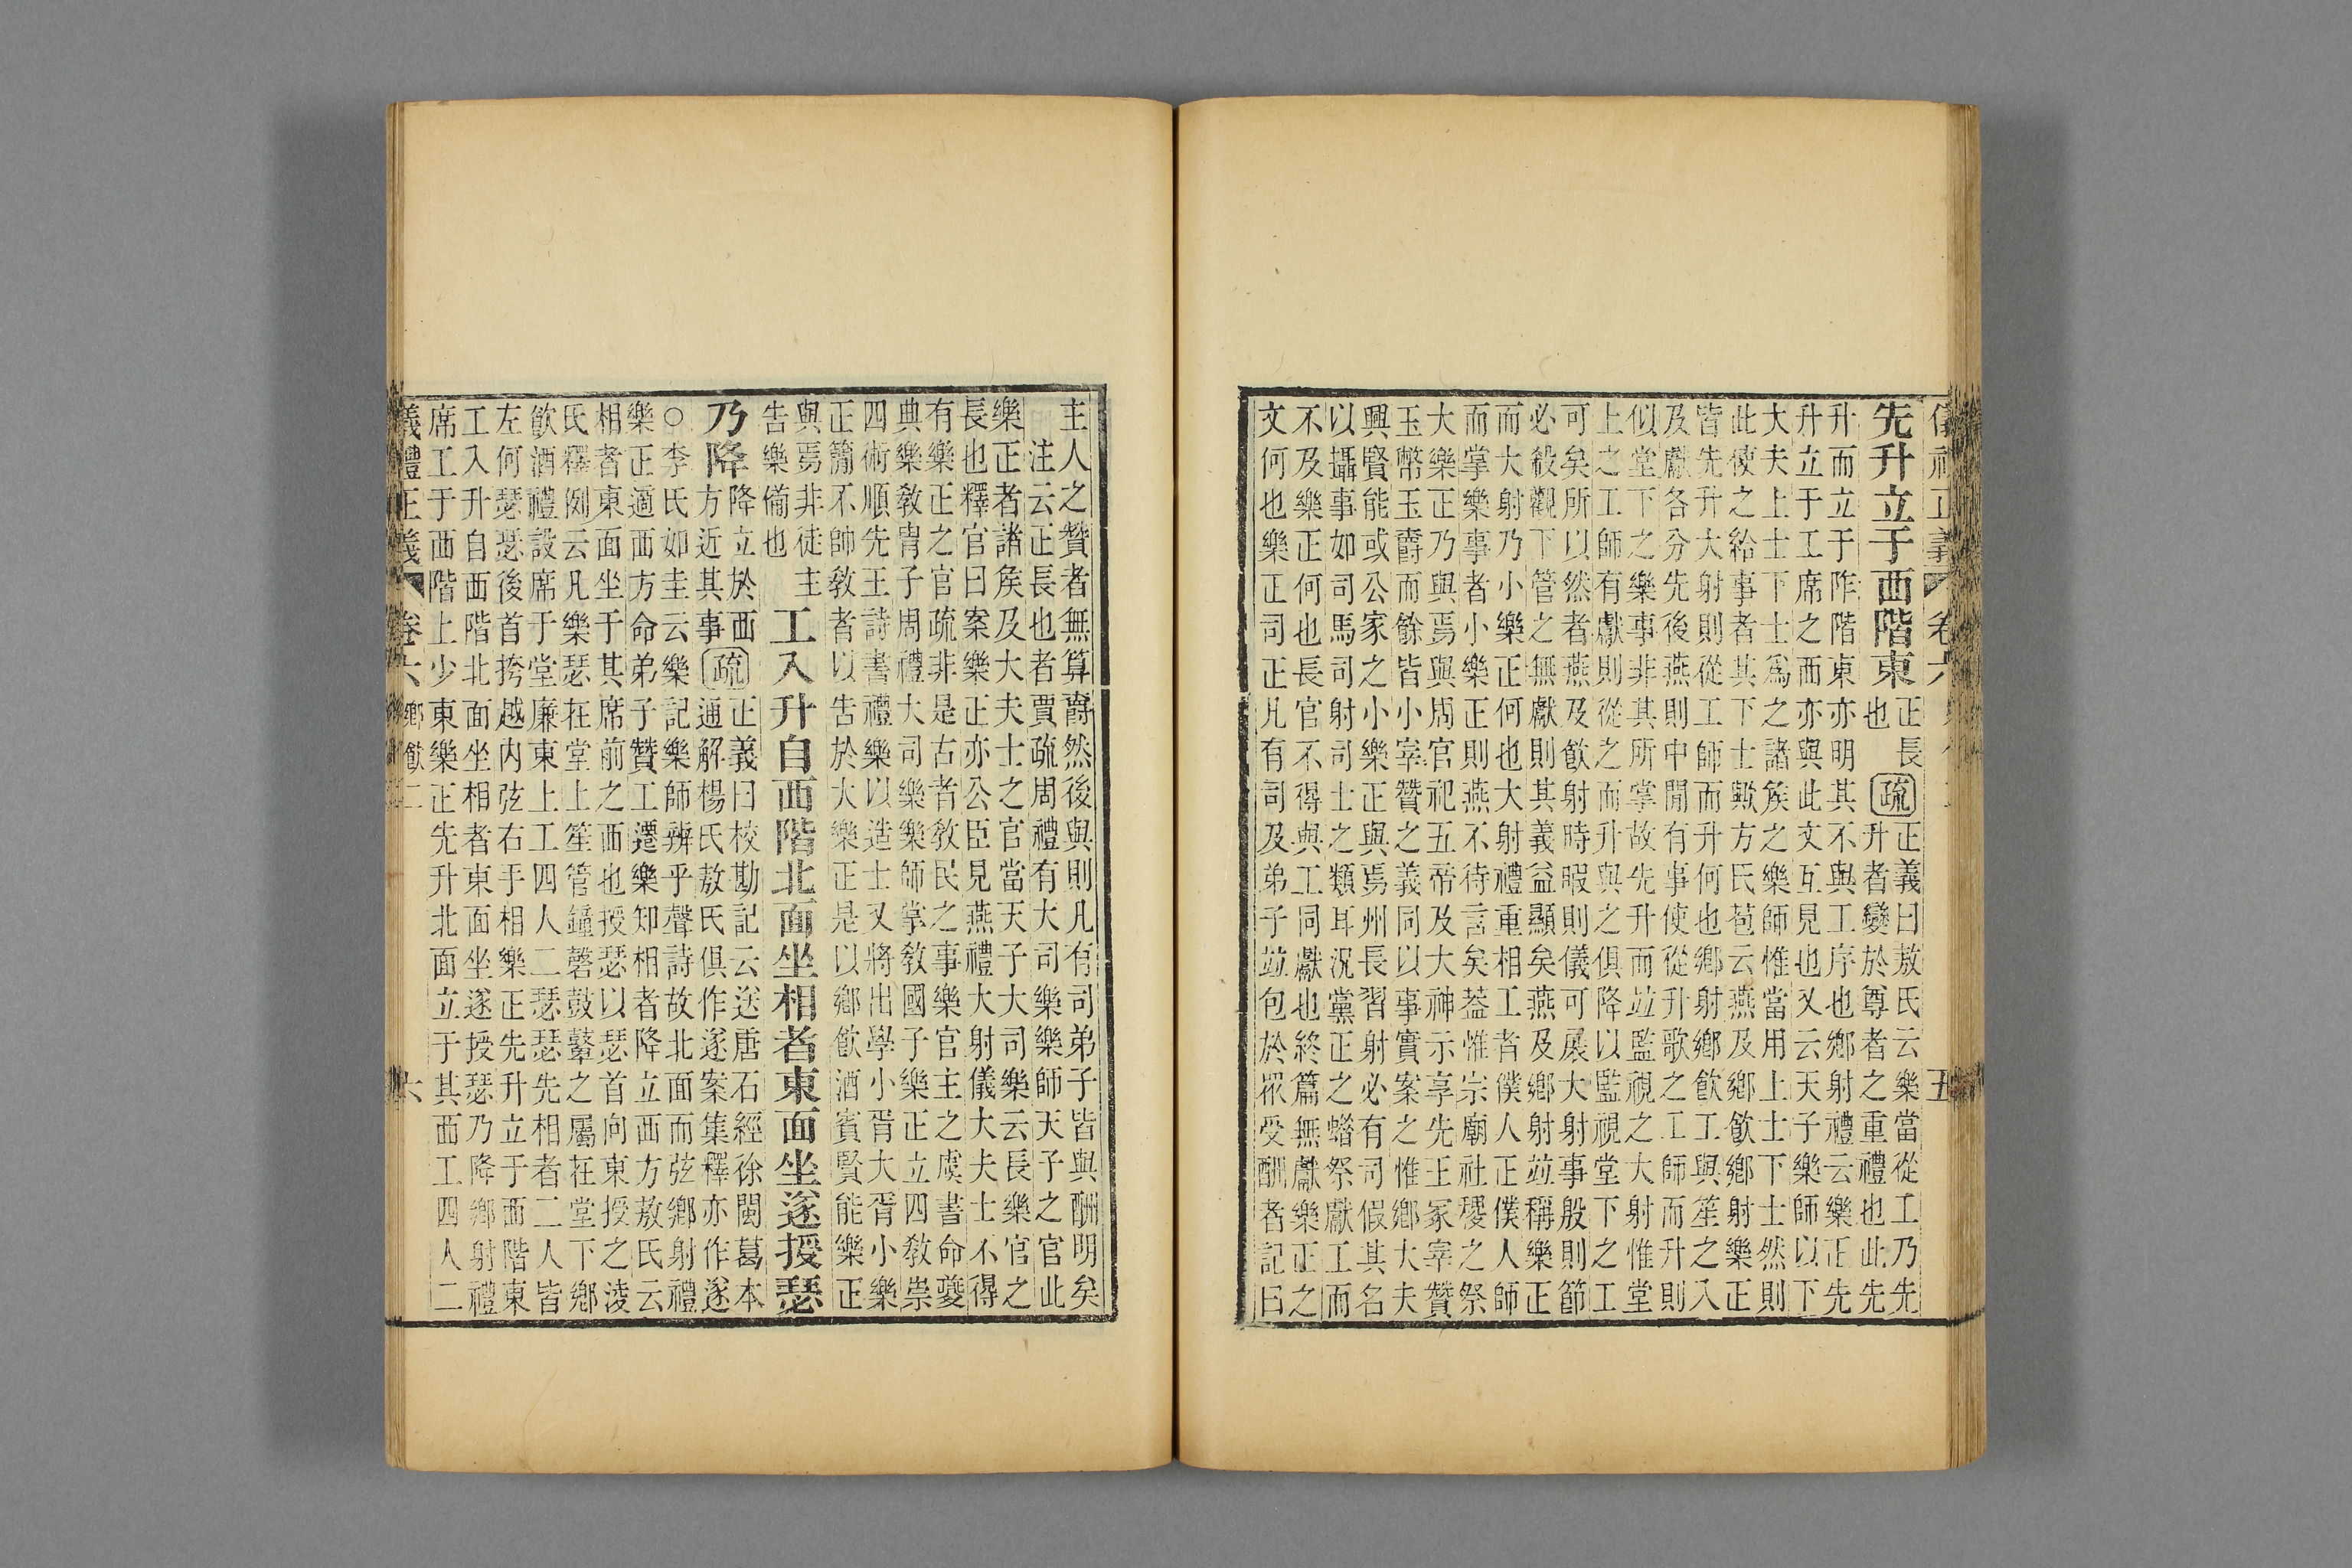 儀禮正義 卷六 五
先升立于西階東
正長
也
疏
正義曰敖氏云樂當從工乃先
升者變於尊者之重禮也此先
升而立于阼階東亦明其不與工序也鄉射禮云樂正先
升立于工席之西亦與此文互見也又云天子樂師以下
大夫上士下士爲之諸矦之樂師惟當用上士下士然則
此使之給事者其下士歟方氏苞云燕及鄉飲鄉射樂正
皆先升大射則從工師而升何也鄉射鄉飲工與笙之入
及獻各分先後燕則中閒有事使從升歌之工師而升則
似堂下之樂事非其所掌故先升而竝監視之大射惟堂
上之工師有獻則從之而升與之俱降以監視堂下之工
可矣所以然者燕及飲射時暇則儀可展大射事殷則節
必殺觀下管之無獻則其義益顯矣燕及鄉射竝稱樂正
而大射乃小樂正何也大射禮重相工者僕人正僕人師
而掌樂事者小樂正則燕不待言矣葢惟宗廟社稷之祭
大樂正乃與焉與周官祀五帝及大神示享先王冢宰贊
玉幣玉爵而餘皆小宰贊之義同以事實案之惟鄉大夫
興賢能或公家之小樂正與焉州長習射必有司假其名
以攝事如司馬司射司士之類耳況黨正之蜡祭獻工而
不及樂正何也長官不得與工同獻也終篇無獻樂正之
文何也樂正司正凡有司及弟子竝包於衆受酬者記曰
主人之贊者無算爵然後與則凡有司弟子皆與酬明矣
注云正長也者賈疏周禮有大司樂樂師天子之官此
樂正者諸矦及大夫士之官當天子大司樂云長樂官之
長也釋官曰案樂正亦公臣見燕禮大射儀大夫士不得
有樂正之官疏非是古者敎民之事樂官主之虞書命夔
典樂敎胄子周禮大司樂樂師掌敎國子樂正立四敎崇
四術順先王詩書禮樂以造士又將出學小胥大胥小樂
正簡不帥敎者以告於大樂正是以鄉飲酒賓賢能樂正
與焉非徒主
告樂備也
工入升自西階北面坐相者東面坐遂授瑟
乃降
降立於西
方近其事
疏
正義曰校勘記云送唐石經徐閩葛本
通解楊氏敖氏俱作遂案集釋亦作遂
○李氏如圭云樂記樂師辨乎聲詩故北面而弦鄉射禮
樂正適西方命弟子贊工遷樂知相者降立西方敖氏云
相者東面坐于其席前之西也授瑟以瑟首向東授之淩
氏釋例云凡樂瑟在堂上笙管鐘磬鼓鼙之屬在堂下鄉
飲酒禮設席于堂廉東上工四人二瑟瑟先相者二人皆
左何瑟瑟後首挎越内弦右手相樂正先升立于西階東
工入升自西階北面坐相者東面坐遂授瑟乃降鄉射禮
席工于西階上少東樂正先升北面立于其西工四人二
義禮正義 卷六 鄉飲二 六